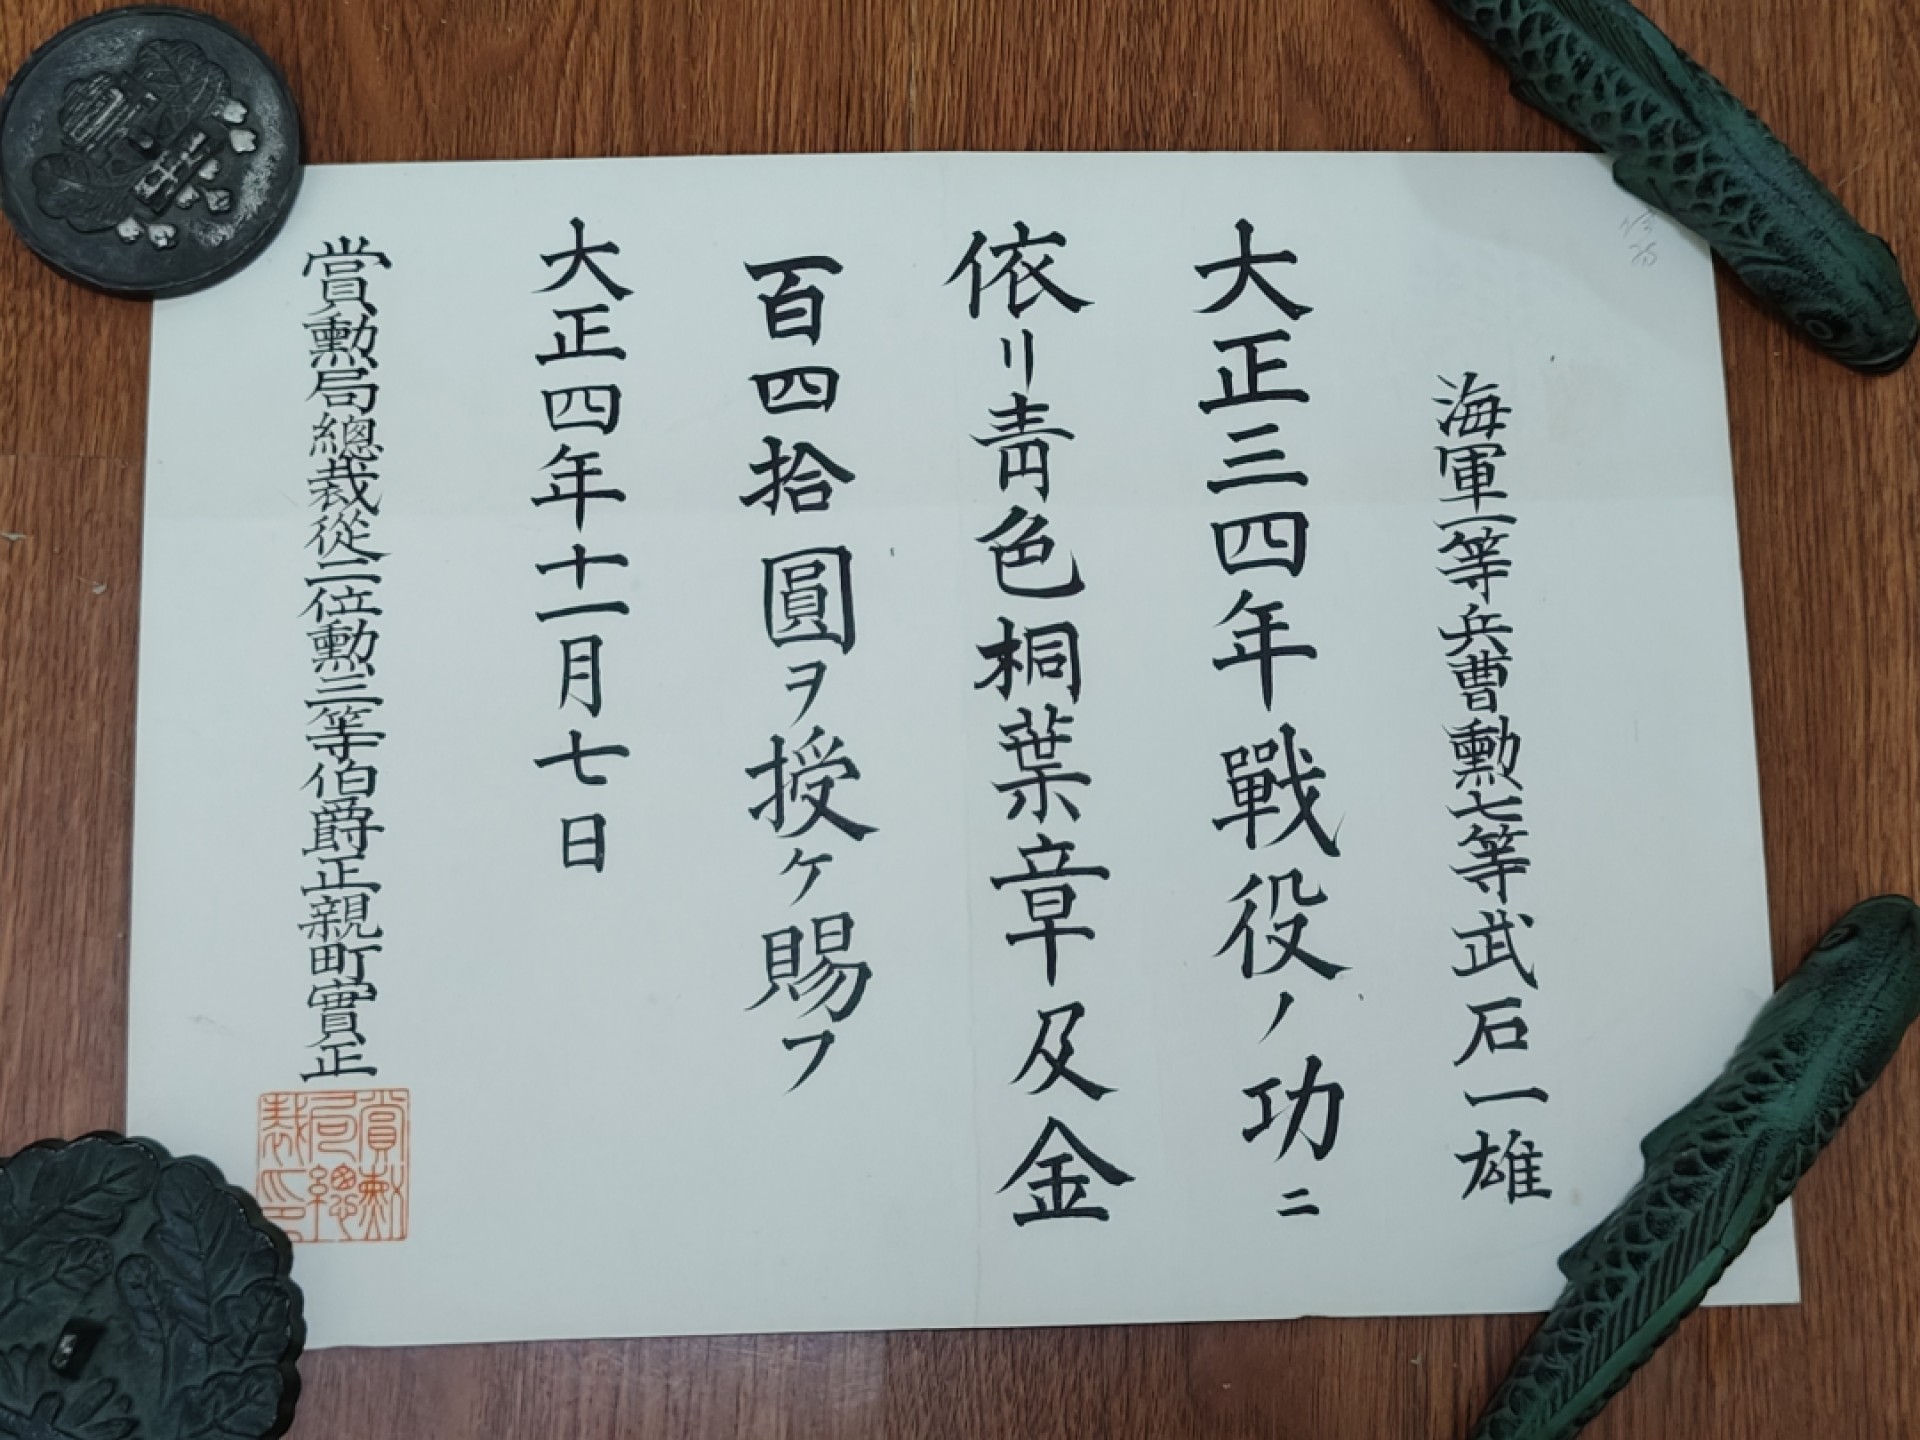 海軍一等兵曹勲七等武石一雄
大正三四年戰役ノ功ニ
依リ靑色桐葉章及金
百四拾圓ヲ授ケ賜フ
大正四年十一月七日
賞勲局總裁從二位勲三等伯爵正親町實正
賞勲局總裁印